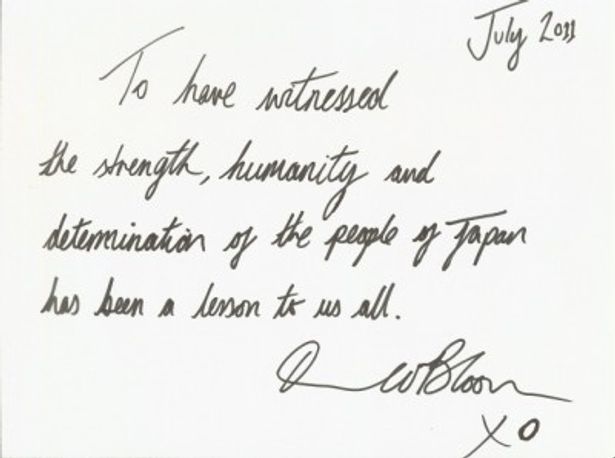 July 2011
To have witnessed
the strength, humanity and
determination of the people of Japan
has been a lesson to us all.
O W Bloom
XO